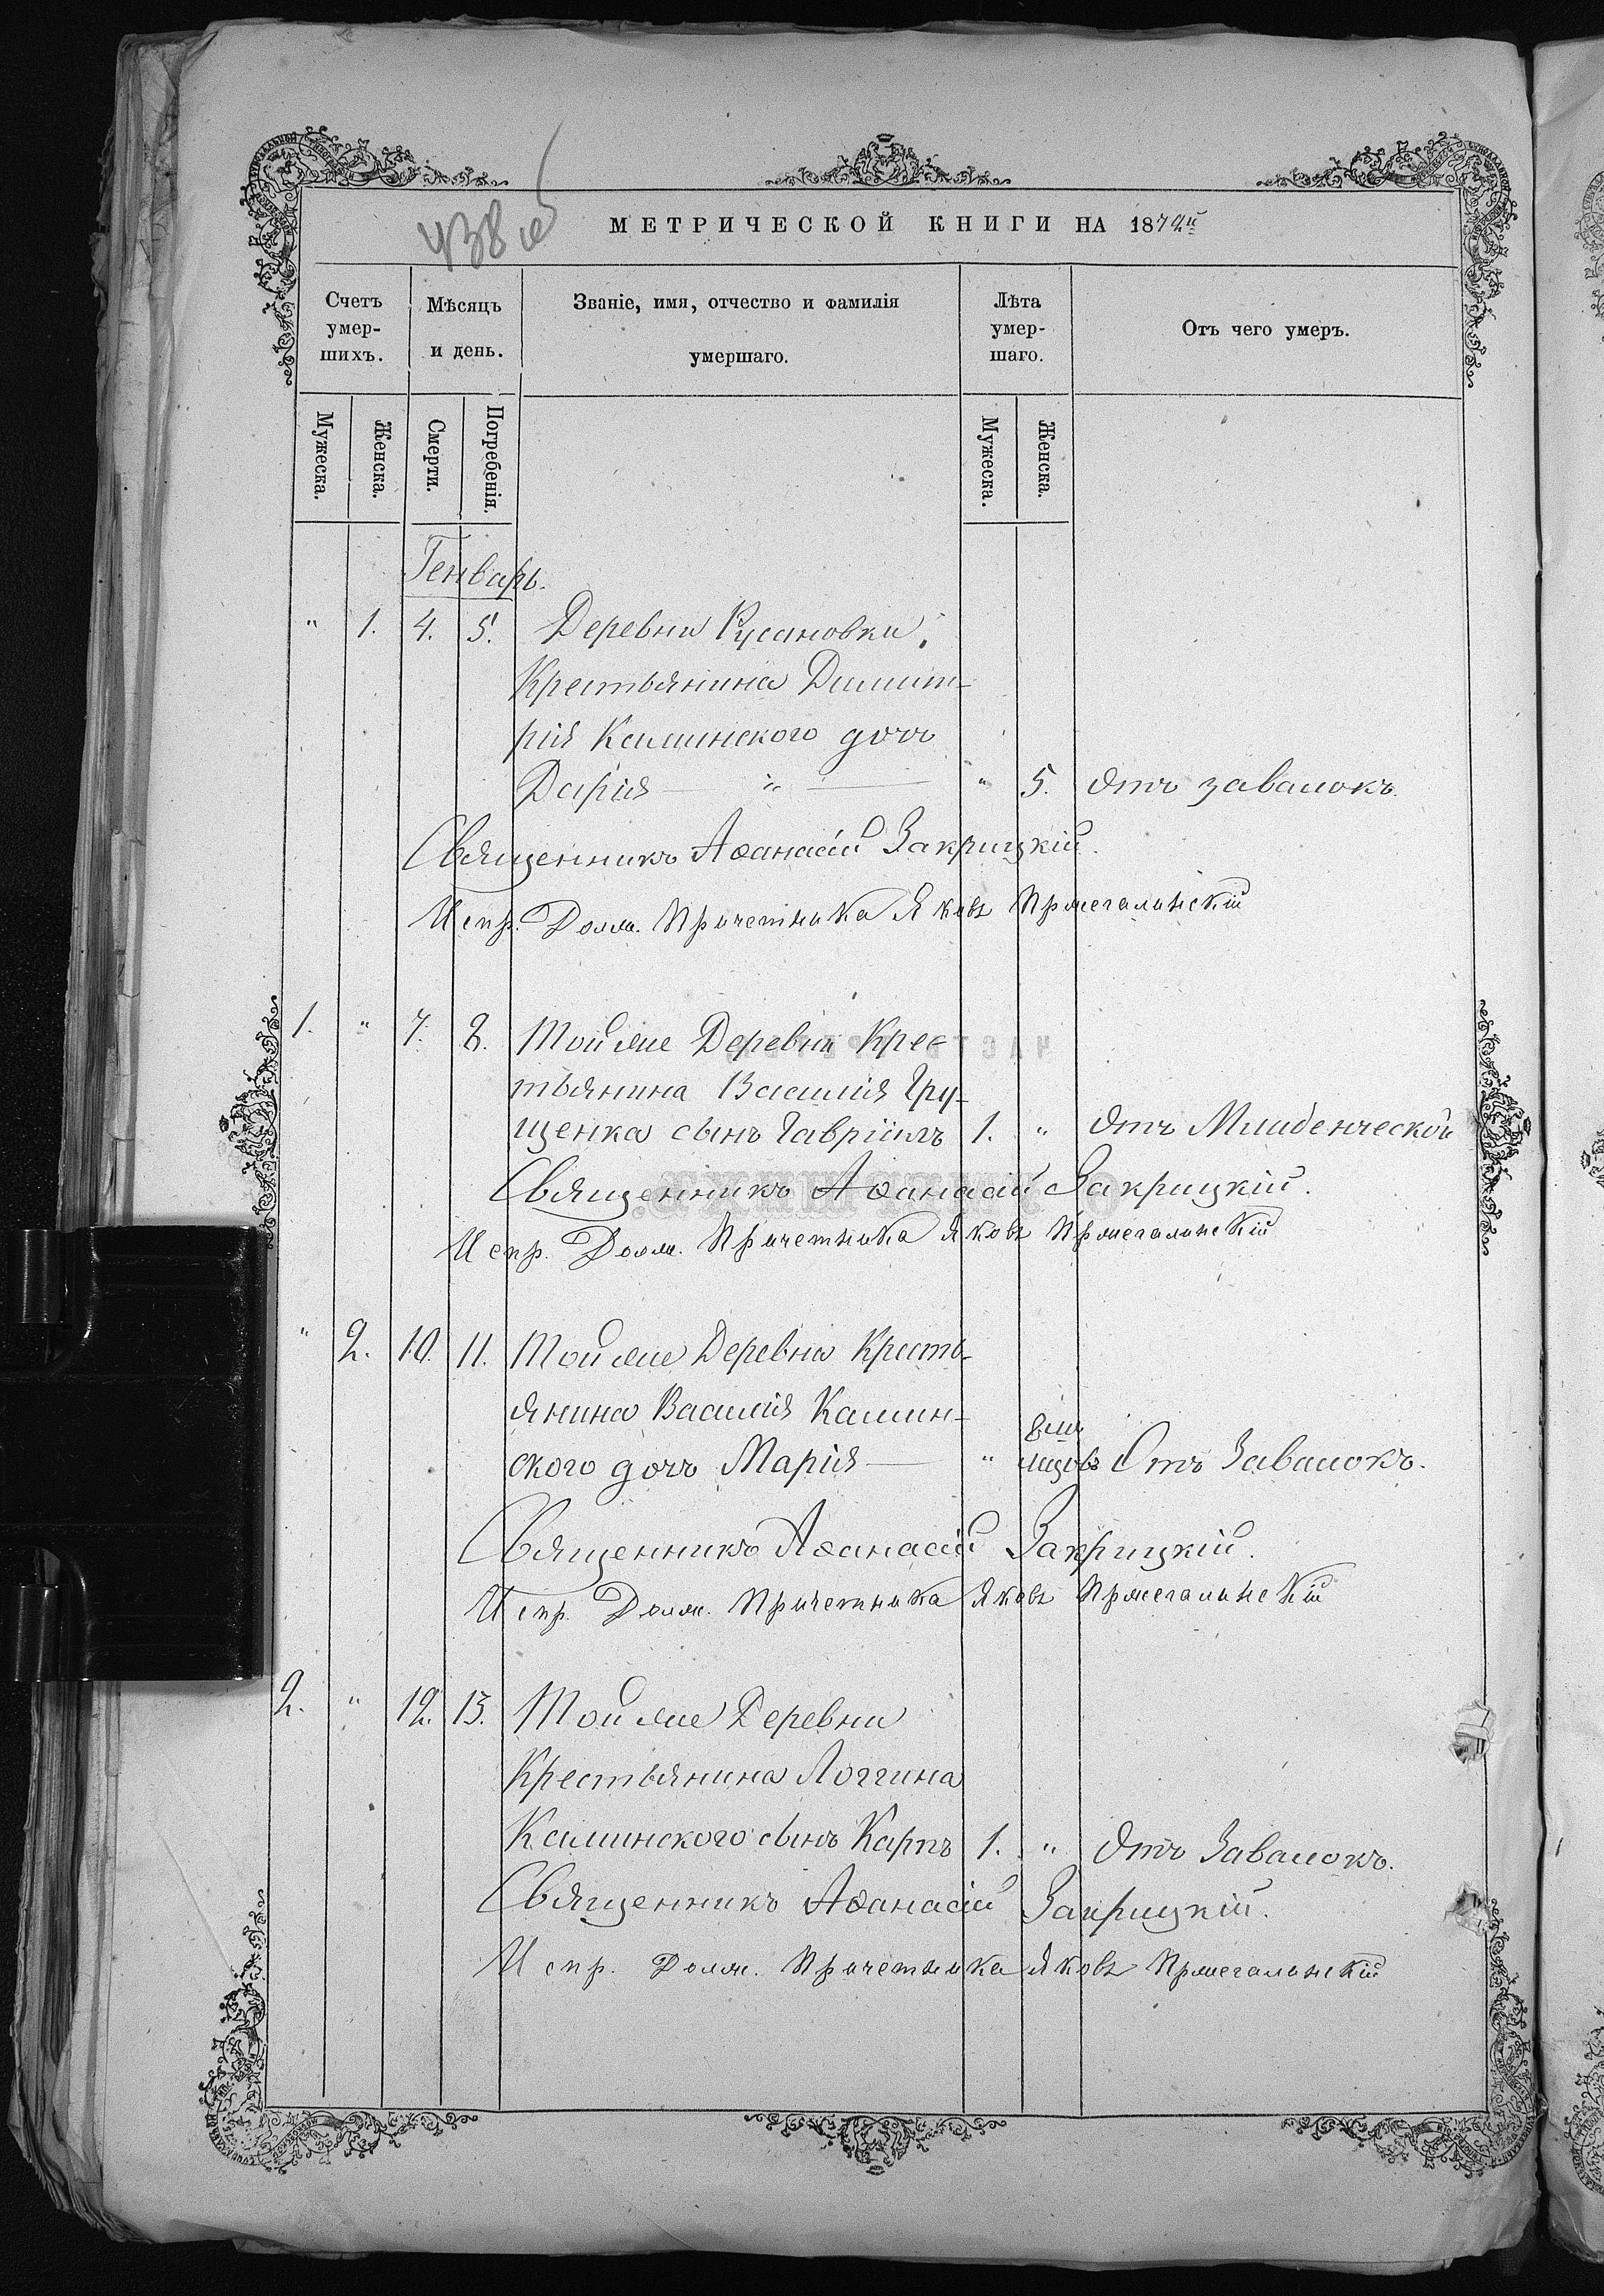 438 об
МЕТРИЧЕСКОЙ КНИГИ НА 1872й
Счетъ умер-шихъ.
Мѣсяцъ и день.
Званіе, имя, отчество и фамилія умершаго.
Лѣта умер-шаго.
Отъ чего умеръ.
Мужеска. Женска. Смерти. Погребенія. Мужеска. Женска.
Генварь.
" 1. 4. 5. Деревни Русановки,
Крестьянина Димит-
рія Калинского дочь
Дарія — " — " 5. Отъ завалокъ.
Священникъ Аѳанасій Закрицкій.
Испр. Долж. Причетника Яковъ
1. " 7. 8. Той же Деревни Крес-
тьянина Василія Гру-
щенка сынъ Гавріилъ 1. " Отъ Младенческой
Священникъ Аѳанасій Закрицкій.
Испр. Долж. Причетника Яковъ
" 2. 10. 11. Той же Деревни Кресть-
янина Василія Калин-
ского дочь Марія — " 8ми мцовъ Отъ Завалокъ.
Священникъ Аѳанасій Закрицкій.
Испр. Долж. Причетника Яковъ
2. " 12. 13. Той же Деревни
Крестьянина Логгина
Калинского сынъ Карпъ 1. " Отъ Завалокъ.
Священникъ Аѳанасій Закрицкій.
Испр. Долж. Причетника Яковъ